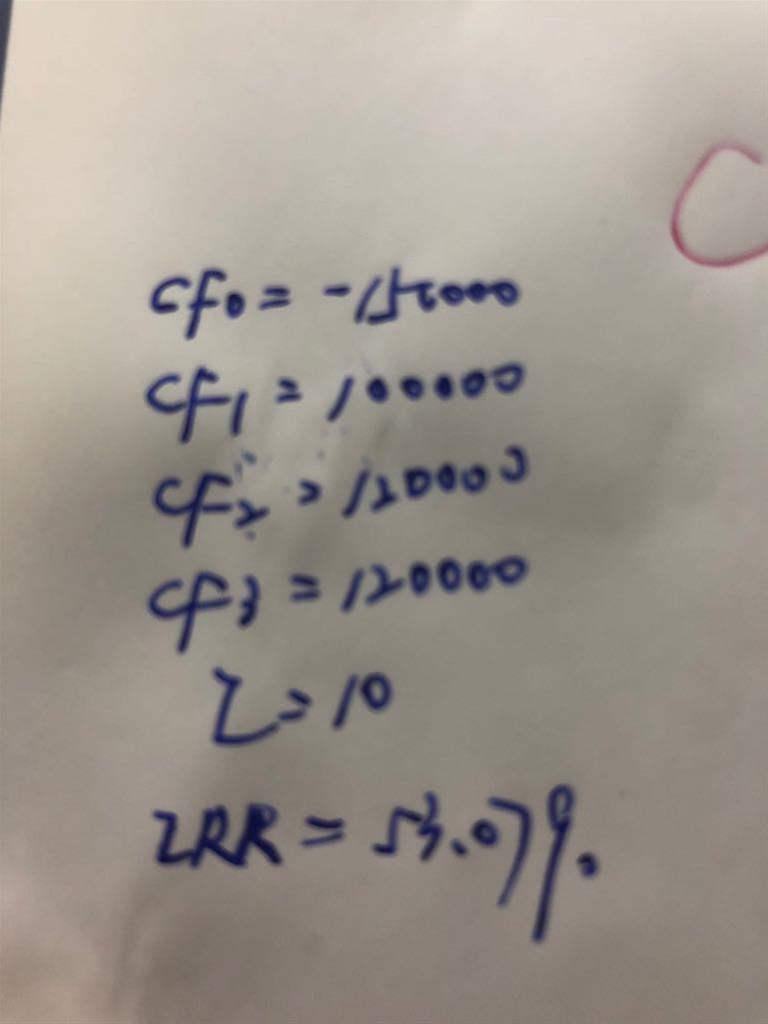 CF0 = -150000
CF1 = 100000
CF2 = 120000
CF3 = 120000
I = 10
IRR = 53.07%.